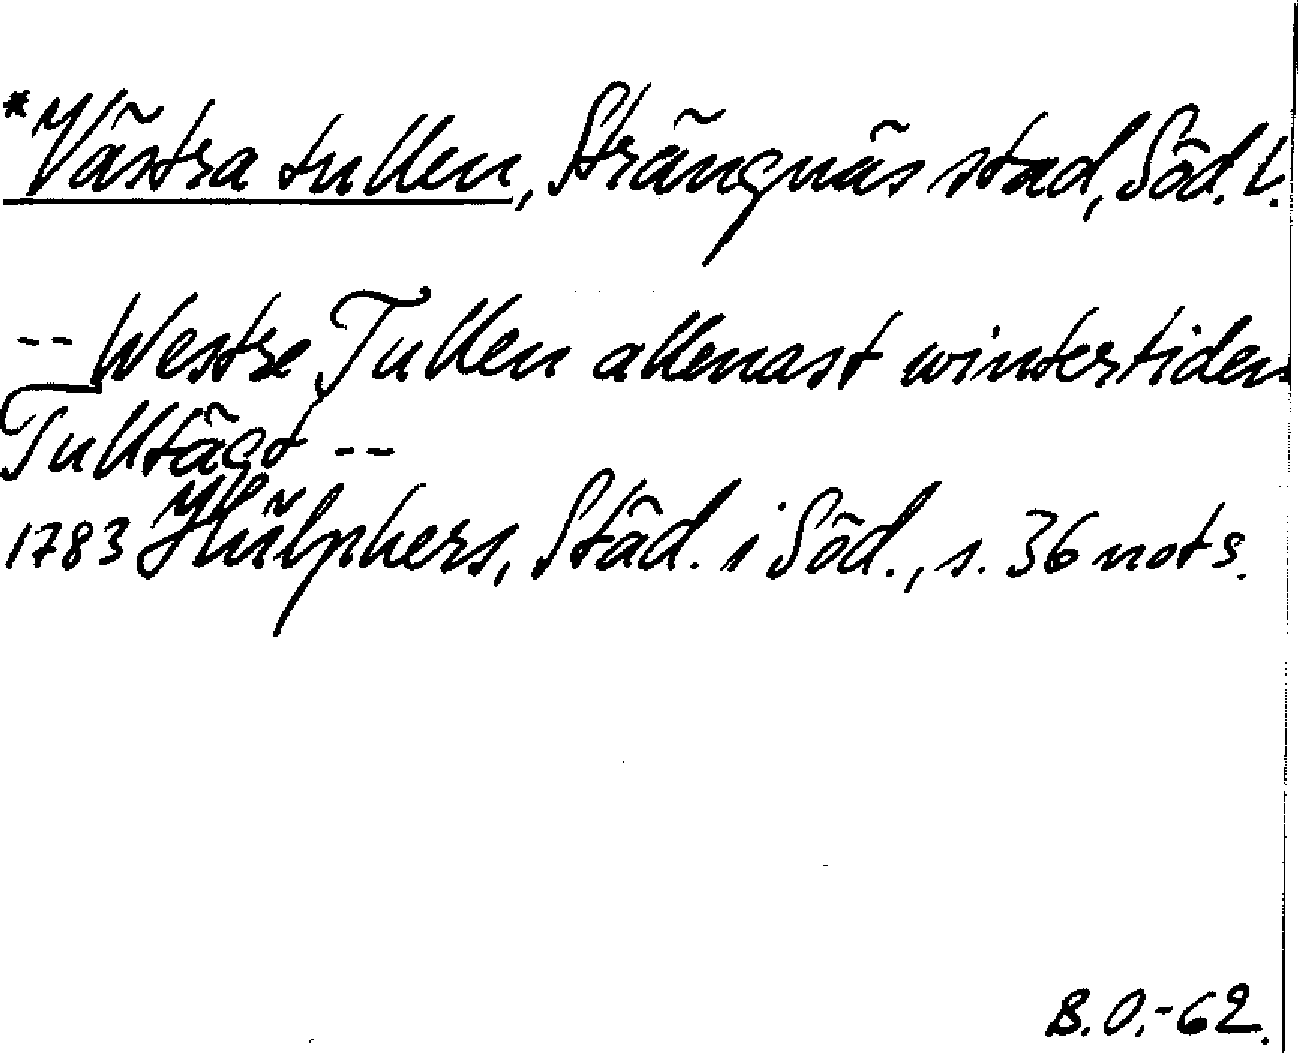 *Västra tullen, Strängnäs stad, Söd. l.
-- Westre Tullen allenast wintertiden
Tullfägt --
1783 Hülphers, Städ. i Söd., s. 36 not s.
B.O.-62.